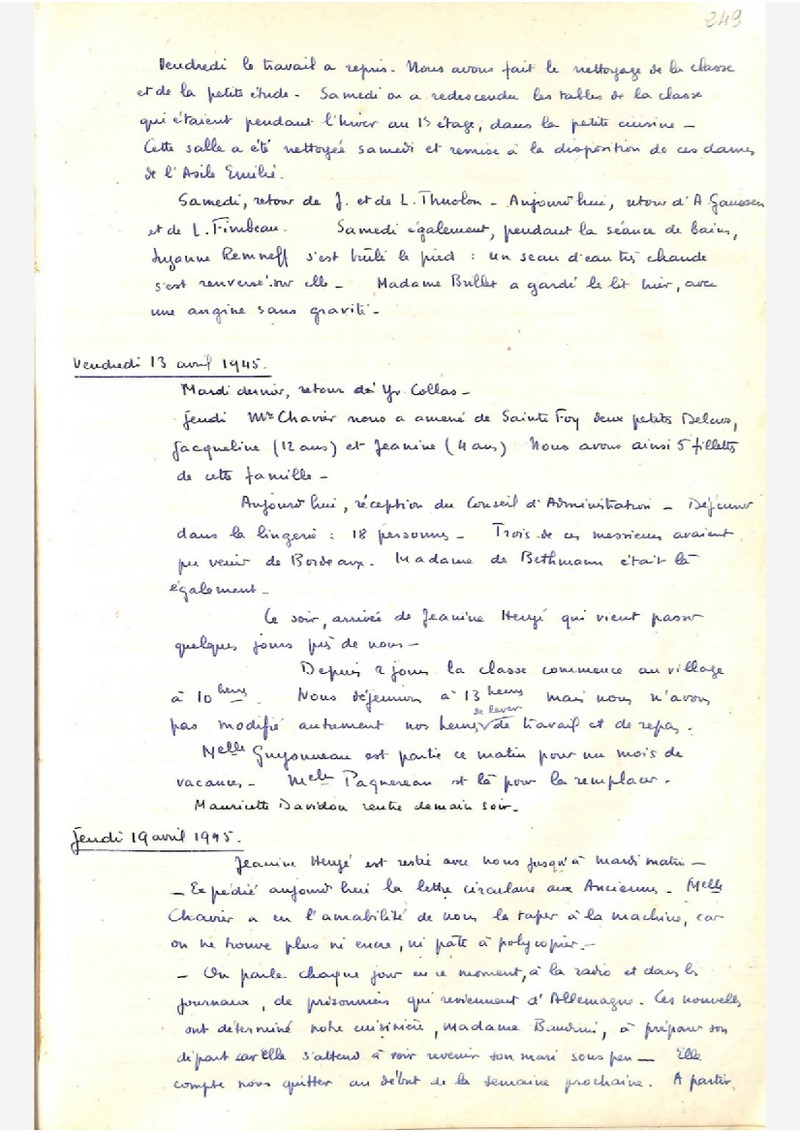 249
Vendredi le travail a repris. Nous avons fait le nettoyage de la classe
et de la petite étude. Samedi on a redescendu les tables de la classe
qui étaient pendant l'hiver au 1er étage, dans la petite cuisine -
Cette salle a été nettoyée samedi et remise à la disposition de ces dames
de l'Asile Emilié.
Samedi, retour de J. et de L. Thuolon - Aujourd'hui, retour d'A. Gaussen
et de L. Fimbeau. Samedi également, pendant la séance de bains,
Suzanne Remneff s'est brûlé le pied : un seau d'eau très chaude
s'est renversé sur elle - Madame Brillet a gardé le lit hier, avec
une angine sans gravité -
Vendredi 13 avril 1945.
Mardi dernier, retour de Yv. Collas -
Jeudi Mr Chavier nous a amené de Sainte Foy deux petits Delcros,
Jacqueline (12 ans) et Jeanine (4 ans) Nous avons ainsi 5 fillettes
de cette famille -
Aujourd'hui, réception du Conseil d'Administration - Déjeuner
dans la lingerie : 18 personnes - Trois de ces messieurs avaient
pu venir de Bordeaux. Madame de Bethmann était là
également -
Ce soir, arrivée de Jeanine Hergé qui vient passer
quelques jours près de nous -
Depuis 2 jours la classe commence au village
à 10 heures. Nous déjeunons à 13 heures mais nous n'avons
de lever
pas modifié autrement nos heures de travail et de repas.
Melle Guyonneau est partie ce matin pour un mois de
vacances - Melle Paquereau est là pour la remplacer.
Mauricette Davidou rentre demain soir.
Jeudi 19 avril 1945.
Jeanine Hergé est restée avec nous jusqu'à mardi matin -
- Expédié aujourd'hui la lettre circulaire aux Anciennes - Melle
Chavier a eu l'amabilité de nous la taper à la machine, car
on ne trouve plus ni encre, ni pâte à polycopier. -
- On parle chaque jour en ce moment, à la radio et dans les
journaux, de prisonniers qui reviennent d'Allemagne. Ces nouvelles
ont déterminé notre cuisinière, Madame Baudrui, à préparer son
départ car elle s'attend à voir revenir son mari sous peu - Elle
compte nous quitter au début de la semaine prochaine. A partir